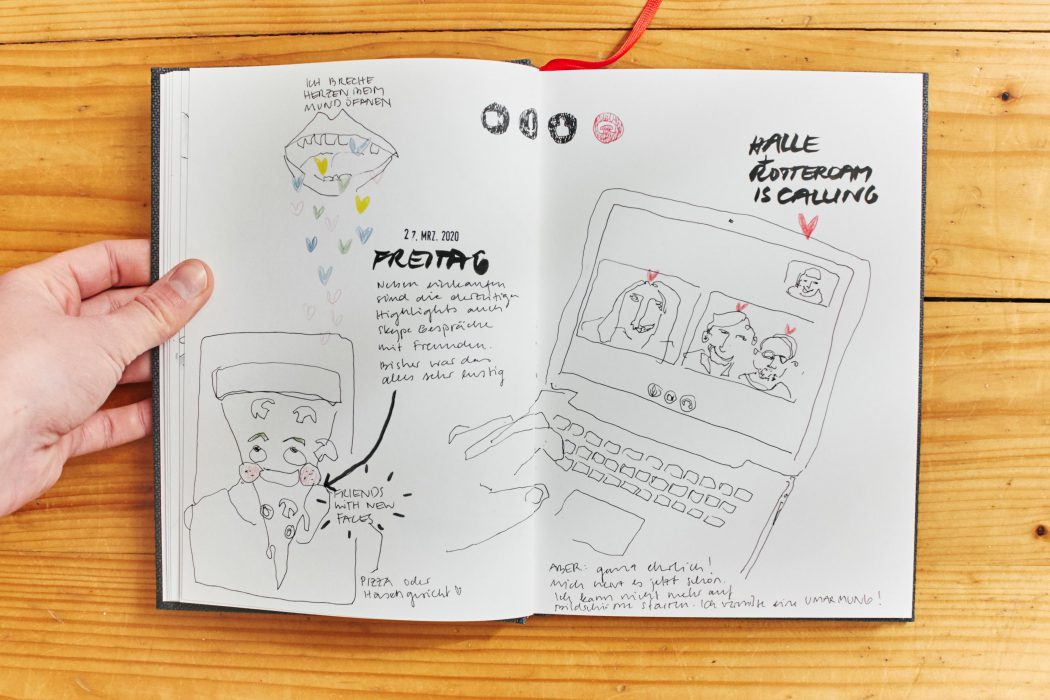 ICH BRECHE
HERZEN BEIM
MUND ÖFFNEN
27. MRZ. 2020
FREITAG
Neben einkaufen
sind die derzeitigen
Highlights auch
Skype Gespräche
mit Freunden.
Bisher war das
alles sehr lustig
FRIENDS
WITH NEW
FACES
PIZZA oder
Hasengesicht
HALLE
+
ROTTERDAM
IS CALLING
ABER: ganz ehrlich!
Mich nervt es jetzt schon.
Ich kann nicht mehr auf
Bildschirme starren. Ich vermisse eine UMARMUNG!